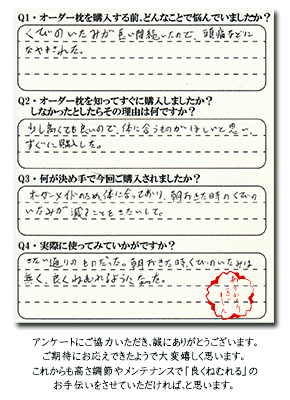 Q1・オーダー枕を購入する前、どんなことで悩んでいましたか?
くびのいたみが長い間続いたので、頭痛などに
なやまされた。
Q2・オーダー枕を知ってすぐに購入しましたか?
しなかったとしたらその理由は何ですか?
少し高くても良いので、体に合うものがほしいと思い
すぐに購入した。
Q3・何が決め手で今回ご購入されましたか?
オーダーメイドのため、体に合っており、朝おきた時のくびの
いたみが減ることをきたいして。
Q4・実際に使ってみていかがですか?
きたい通りのものだった。朝おきた時、くびのいたみは
無く、良くねむれるようになった。
アンケートにご協力いただき、誠にありがとうございます。
ご期待にお応えできたようで大変嬉しく思います。
これからも高さ調節やメンテナンスで『良くねむれる』の
お手伝いをさせていただければ、と思います。